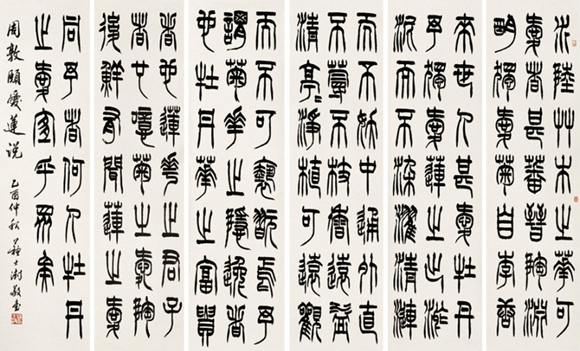 水陸艸木之華可
愛者甚蕃晉陶淵
明獨愛菊自李唐
來世人甚愛牡丹
予獨愛蓮之出淤
泥而不染濯清漣
而不妖中通外直
不蔓不枝香遠益
清亭=淨植可遠觀
而不可褻翫焉予
謂菊華之隱逸者
也牡丹華之富貴
者也蓮華之君子
者也噫菊之愛陶
後鮮有聞蓮之愛
同予者何人牡丹
之愛宜乎眾矣
周敦頤愛蓮說 乙酉仲秋 蘇士澍敬書